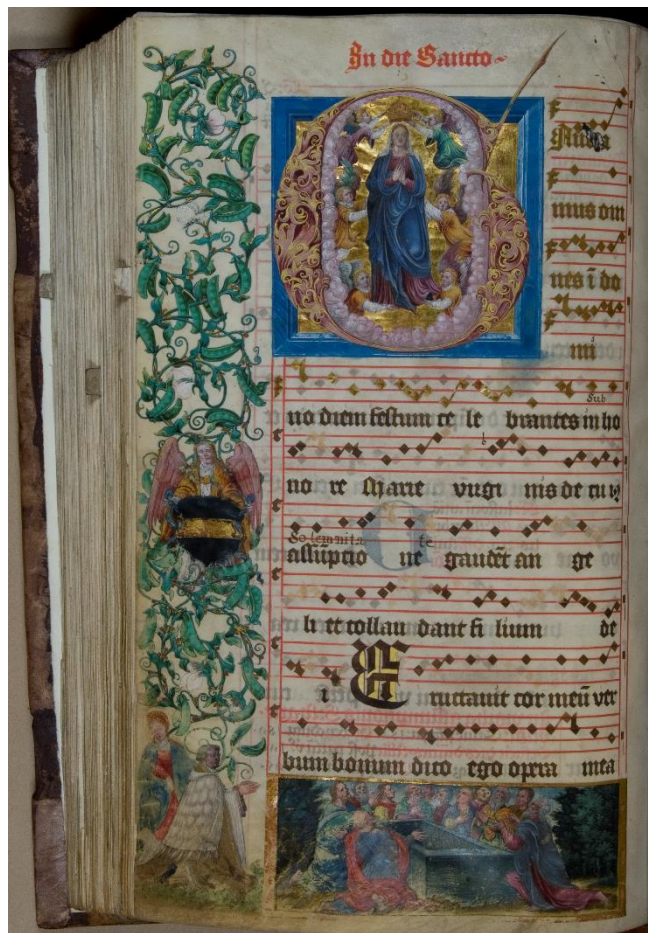 In die Sancto
Gaudea
mus om
nes ī do
mi
Sub
no diem festum ce le brantes in ho
no re Marie virgi nis de cuiꝰ
Solemnita te
assūptio ne gaudēt an ge
li et collau dant fi lium de
i Eructauit cor meū ver
bum bonum dico ego opera mea